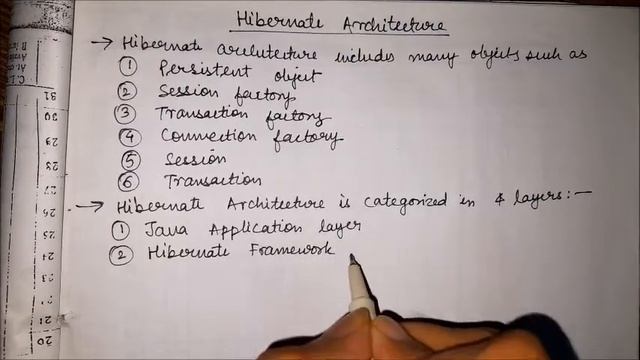 Hibernate Architecture
→ Hibernate architecture includes many objects such as
① Persistent object
② Session factory
③ Transaction factory
④ Connection factory
⑤ Session
⑥ Transaction
→ Hibernate Architecture is categorized in 4 layers:—
① Java Application layer
② Hibernate Framework
31
30
29
28
27
26
25
24
23
22
21
20